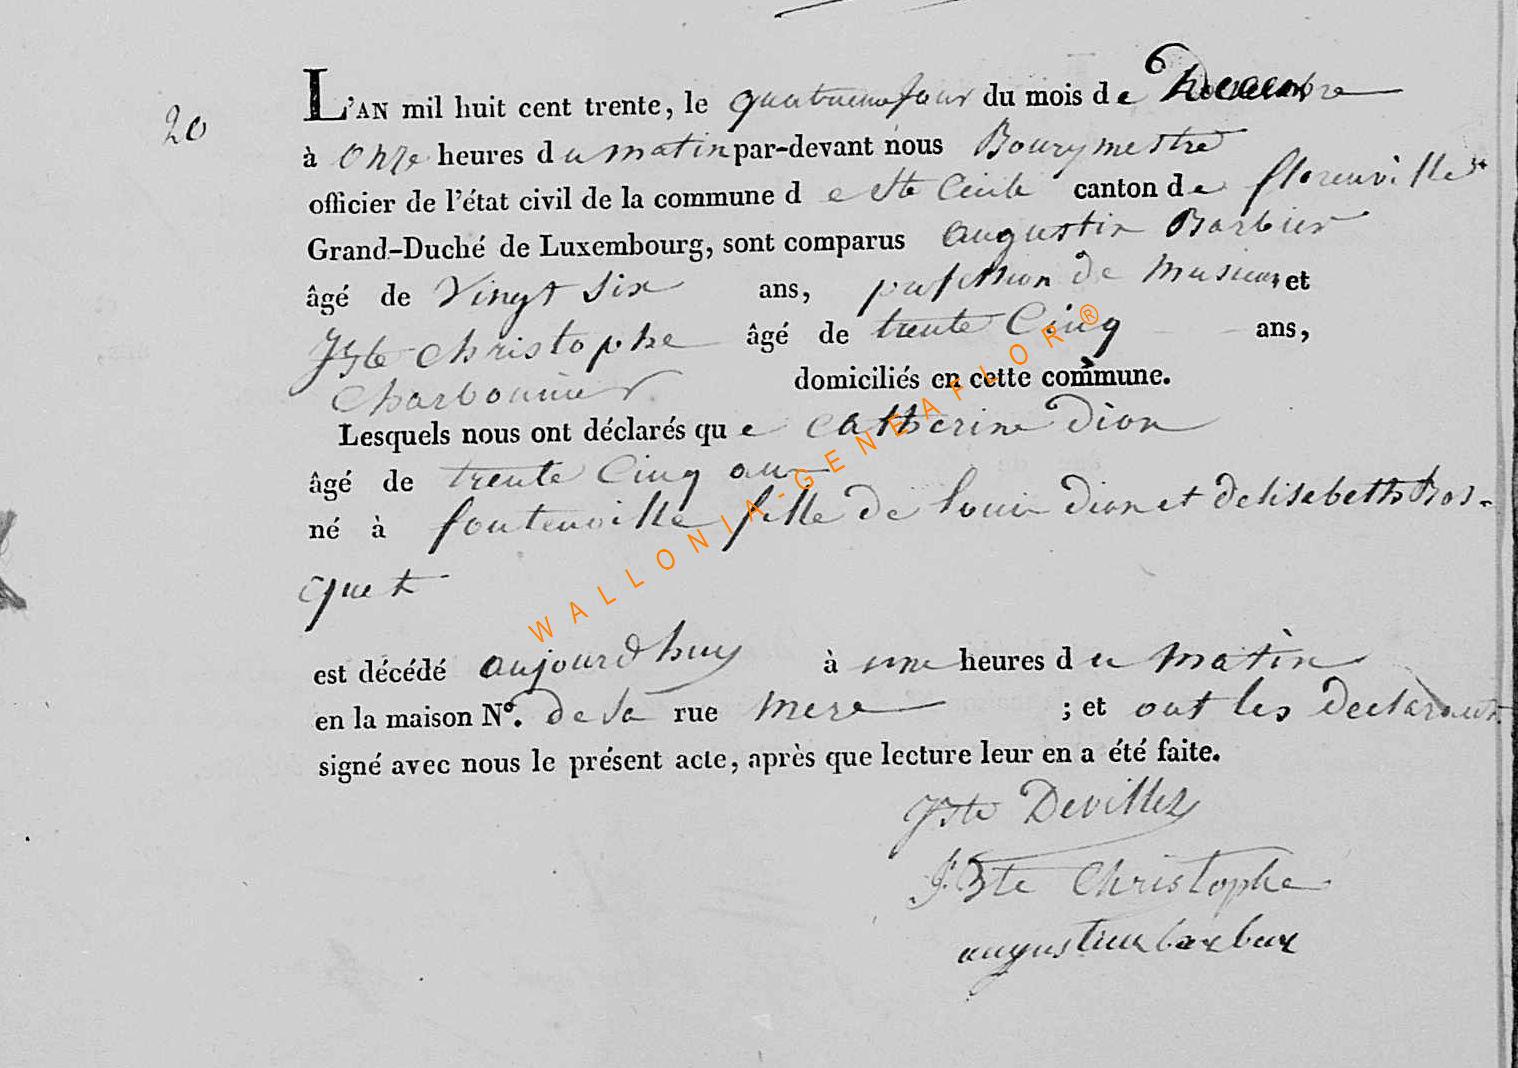 20
L'AN mil huit cent trente, le quatrieme jour du mois de
à onze heures du matin par-devant nous Bourgmestre
officier de l'état civil de la commune de Ste Cecile canton de florenville
Grand-Duché de Luxembourg, sont comparus augustin Barbier
âgé de Vingt Six ans, de et
Jbte christophe âgé de trente Cinq ans,
charbonnier domiciliés en cette commune.
Lesquels nous ont déclarés que catherine dion
âgé de trente Cinq an
né à fontenoille fille de louis dion et delisebeth Bos-
quet
est décédé aujourdhuy à une heures du matin
en la maison N°. de sa rue mere ; et ont les declarants
signé avec nous le présent acte, après que lecture leur en a été faite.
Jbte Devillez
J. Bte Christophe
augustin barbier
WALLONIA-GENEAFLOR®